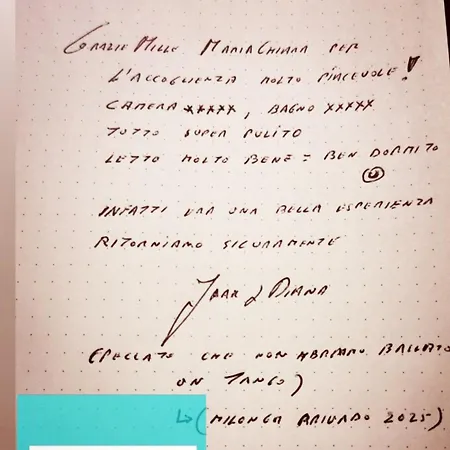 GRAZIE MILLE MARIA CHIARA PER
L'ACCOGLIENZA MOLTO PIACEVOLE!
CAMERA *****, BAGNO XXXXX
TUTTO SUPER PULITO
LETTO MOLTO BENE = BEN DORMITO
☺
INFATTI ERA UNA BELLA ESPERIENZA
RITORNIAMO SICURAMENTE
& DIANA
(PECCATO CHE NON ABBIAMO BALLATO
UN TANGO)
↳ (MILONGA 2025)